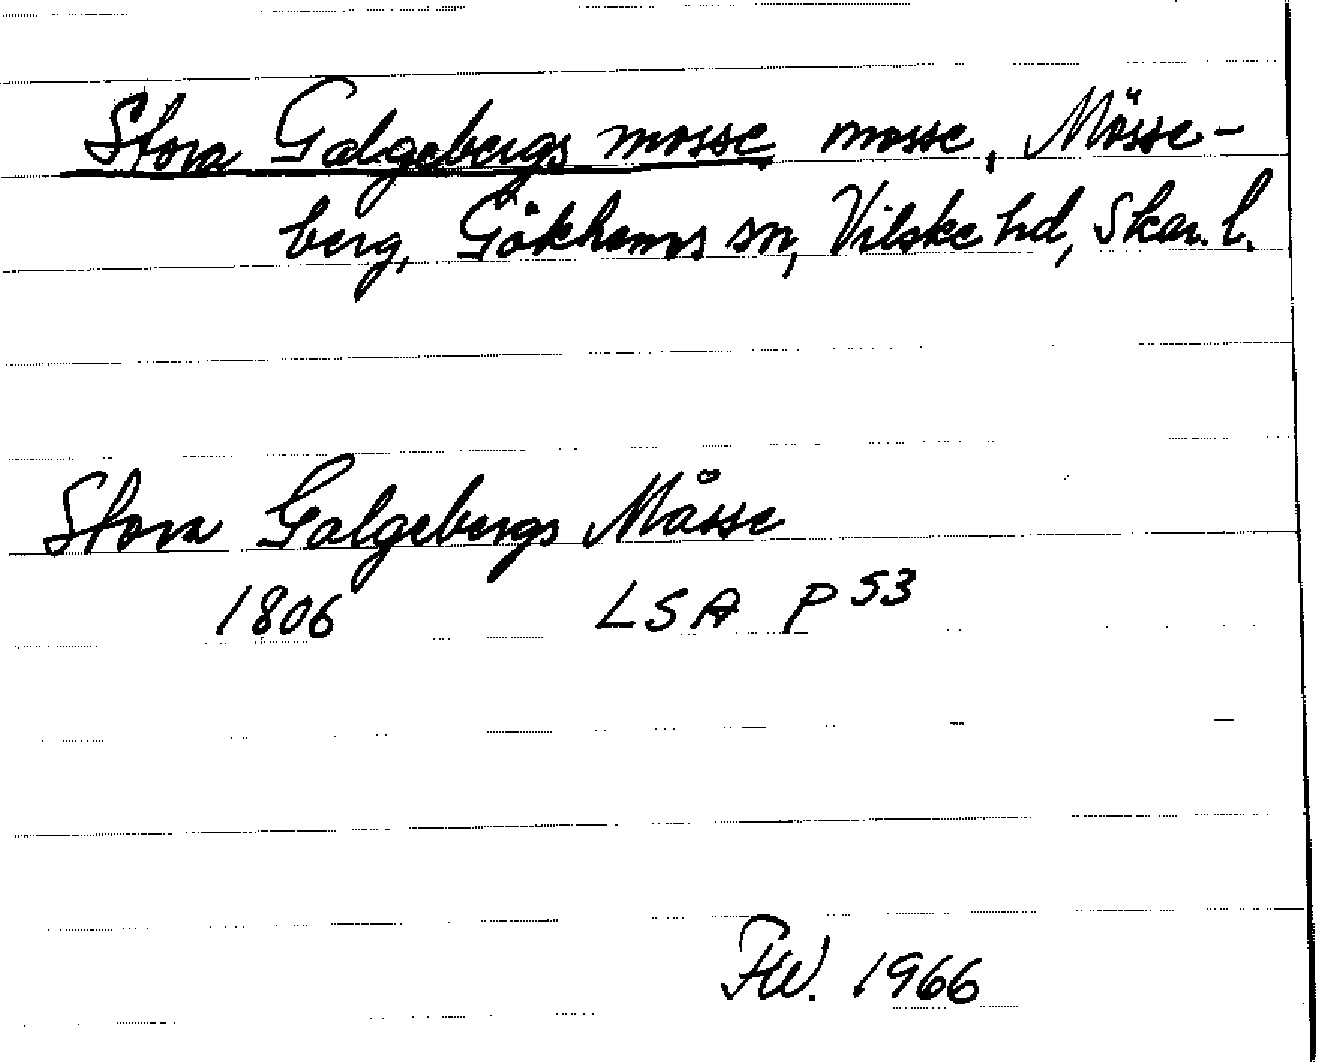 Stora Galgebergs mosse mosse, Mösse-
berg, Gökhems sn, Vilske hd, Skar. l.
Stora Galgebergs Måsse
1806 LSA P 53
FW. 1966